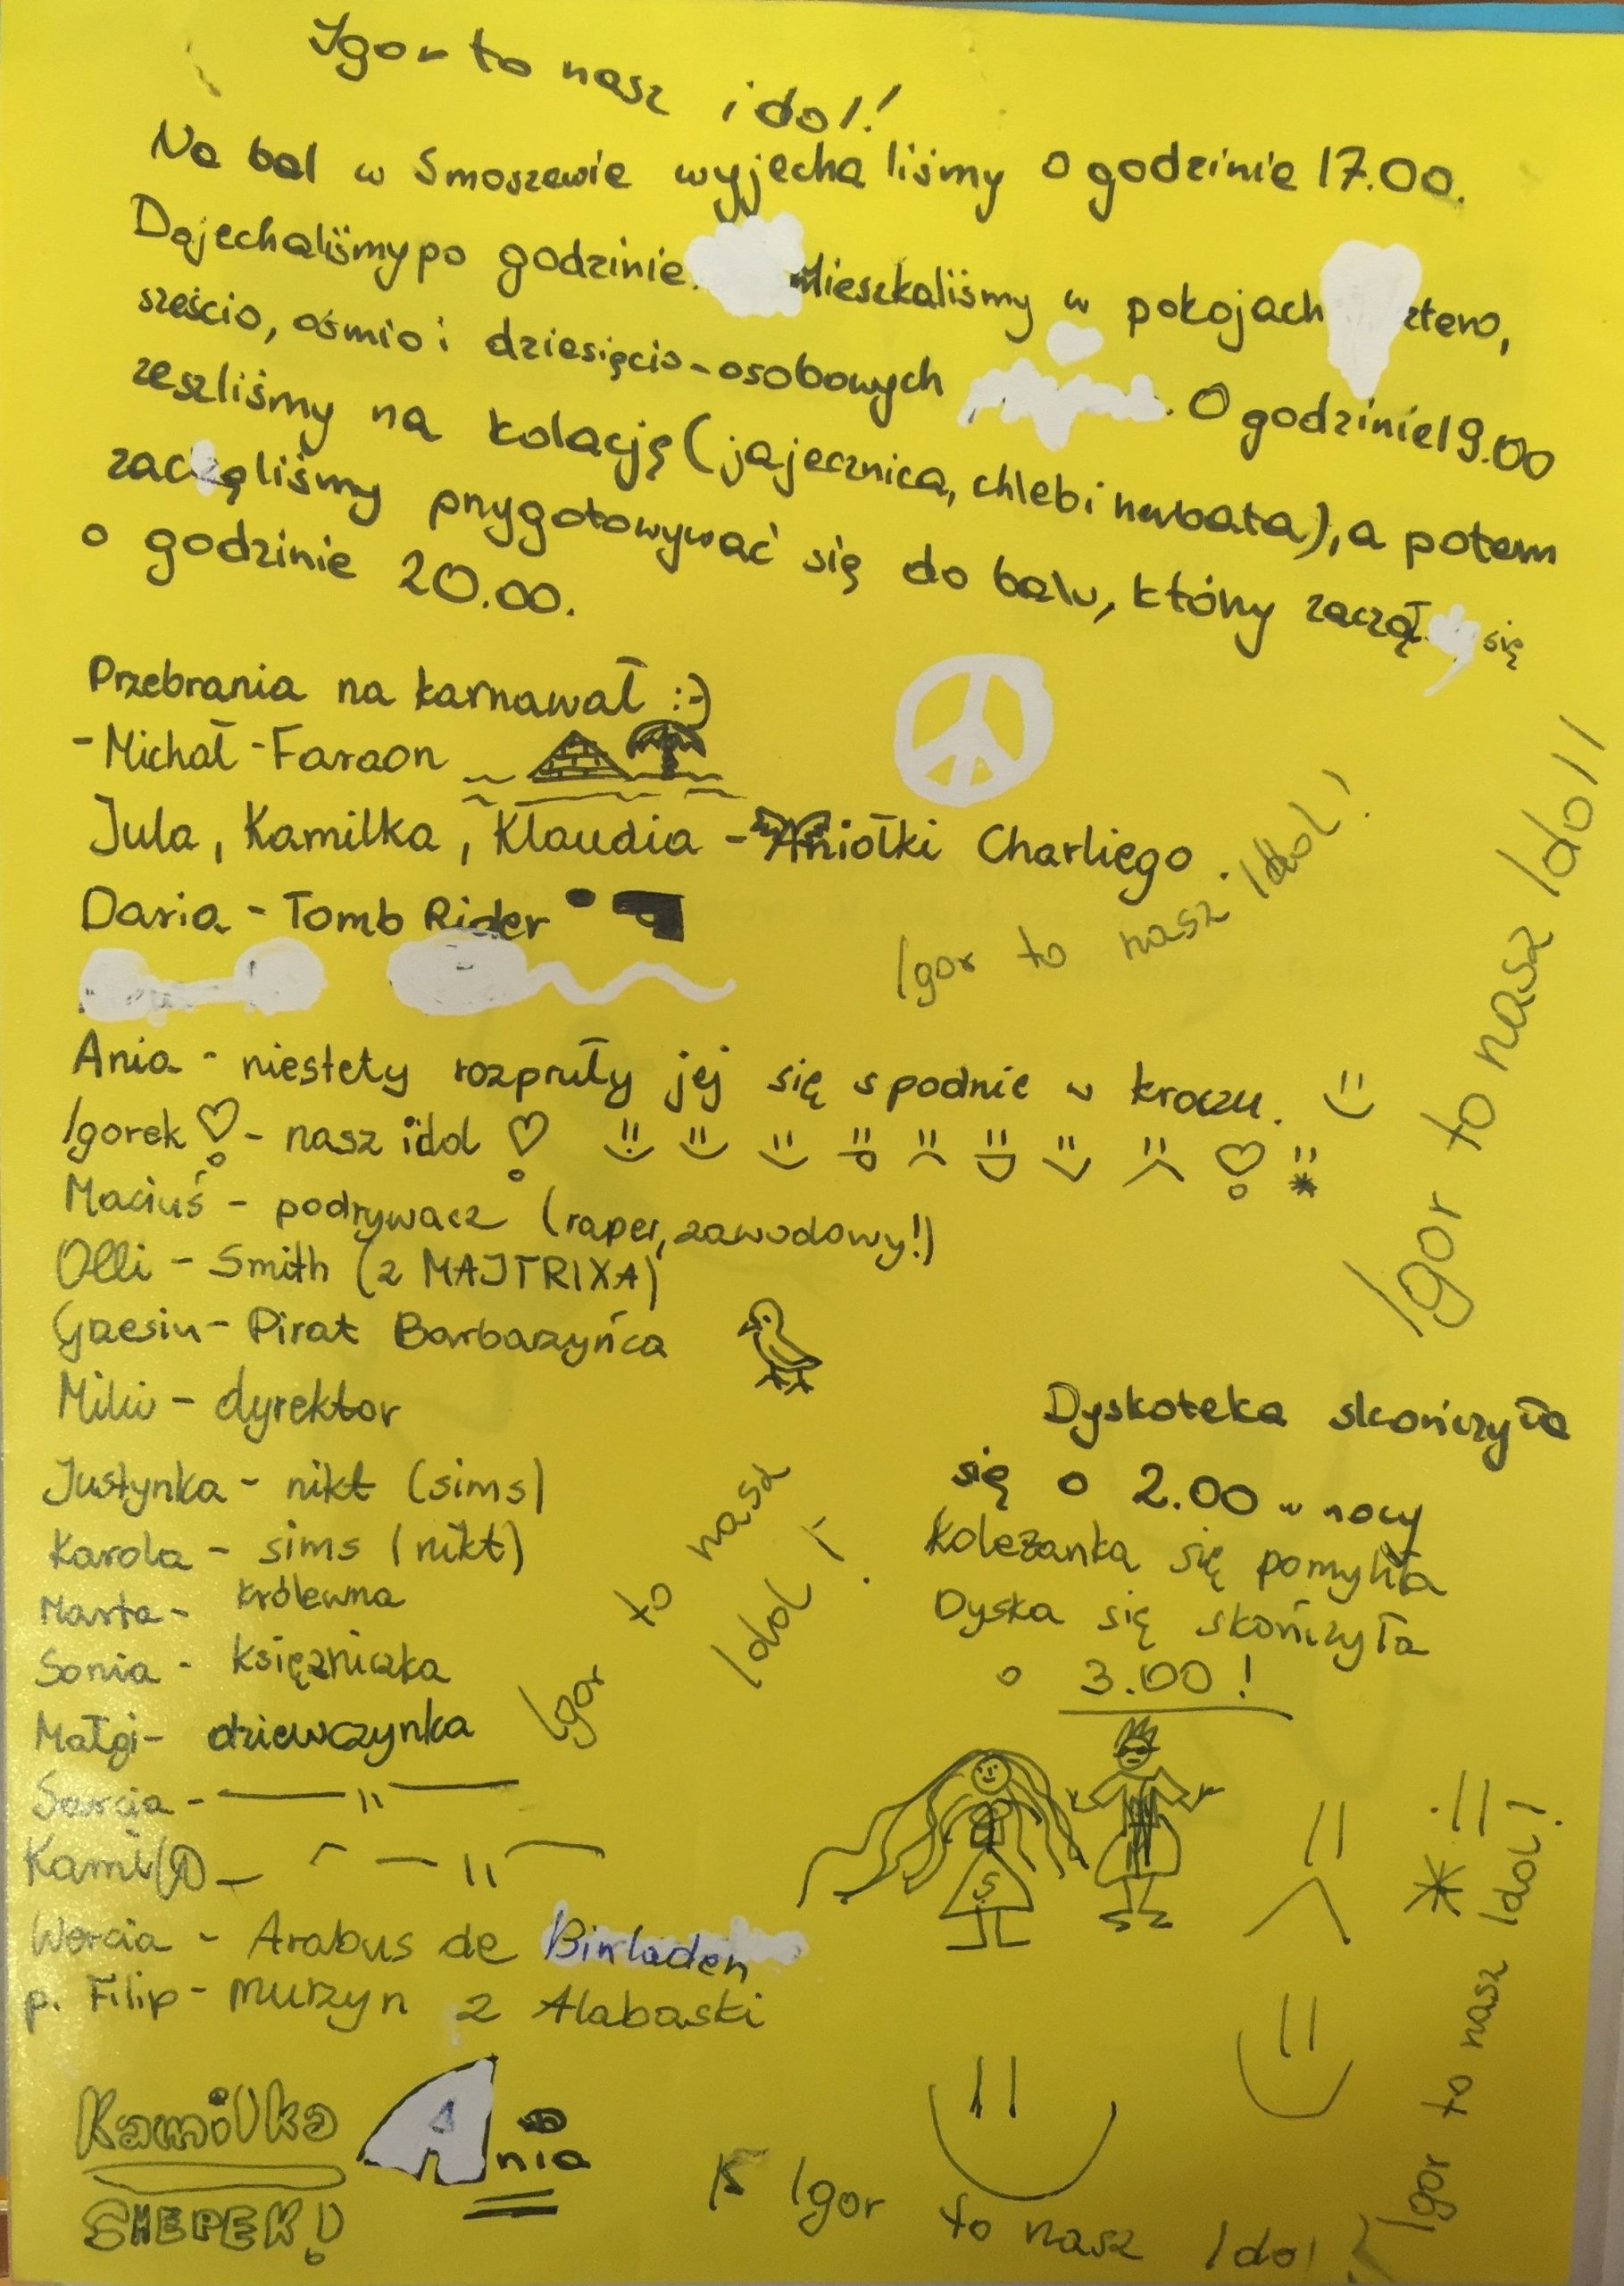 Igor to nasz idol!
Na bal w Smoszewie wyjechaliśmy o godzinie 17.00.
Dojechaliśmy po godzinie. Mieszkaliśmy w pokojach cztero,
sześcio, ośmio i dziesięcio-osobowych. O godzinie 19.00
zeszliśmy na kolację (jajecznica, chleb i herbata), a potem
zaczęliśmy przygotowywać się do balu, który zaczął się
o godzinie 20.00.
Przebrania na karnawał :-)
- Michał - Faraon
Jula, Kamilka, Klaudia - Aniołki Charliego.
Daria - Tomb Rider
Igor to nasz Idol!
Igor to nasz Idol!
Ania - niestety rozpruły jej się spodnie w kroczu.
Igorek - nasz idol
Maciuś - podrywacz (raper, zawodowy!)
Olli - Smith (z MAJTRIXA)
Grzesiu - Pirat Barbarzyńca
Miliu - dyrektor
Justynka - nikt (sims)
Karola - sims (nikt)
Marta - królewna
Sonia - księżniczka
Małgi - dziewczynka
Sarcia - — || —
Kamil — — || —
Wercia - Arabus de Binladen
p. Filip - murzyn z Alabaski
Igor to nasz
Idol!
Dyskoteka skończyła
się o 2.00 w nocy
Koleżanka się pomyliła
Dyska się skończyła
o 3.00!
S
Kamilka
SHEPEK!
Ania
Igor to nasz Idol
Igor to nasz Idol!